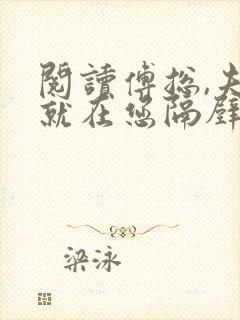 閱讀傅總,夫
就在您隔壁
梁泳